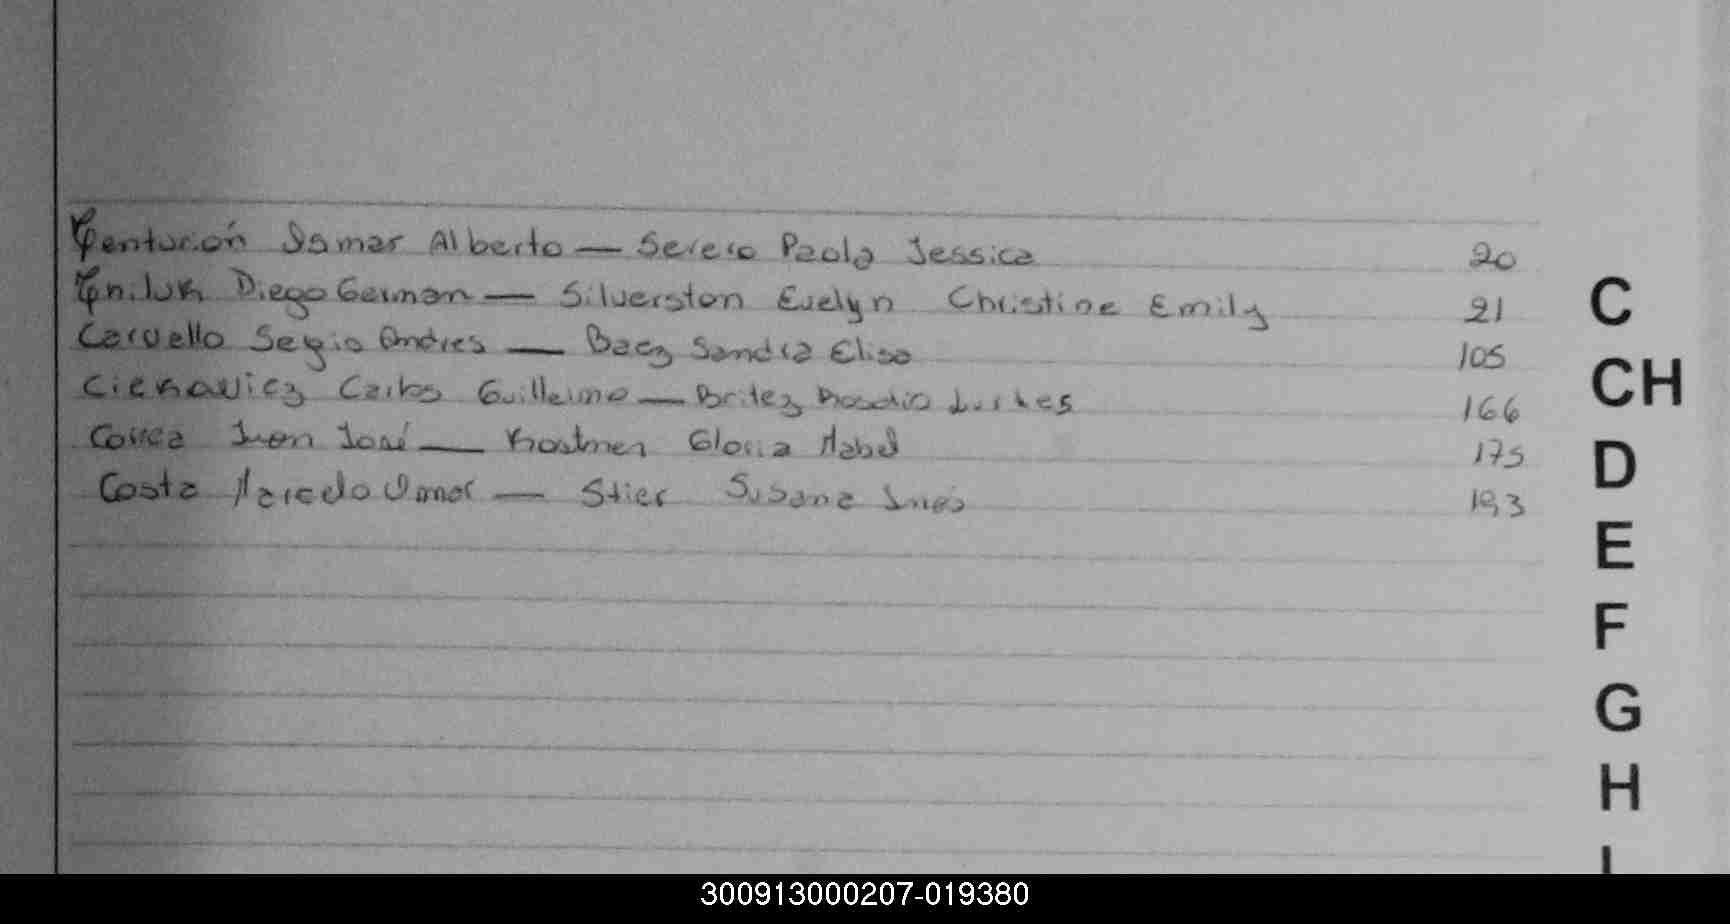 Centurión Ismar Alberto — Severo Paola Jessica 20
Cniluk Diego German — Silverston Evelyn Christine Emily 21
C
Carvello Segio Andres — Baez Sandra Elisa 105
CH
Cienawicz Carlos Guillermo — Britez Rosalia Lurdes 166
Correa Ivan José — Kostmer Gloria Mabel 175
D
Costa Marcelo Omar — Stier Susana Ines 193
E
F
G
H
I
300913000207-019380